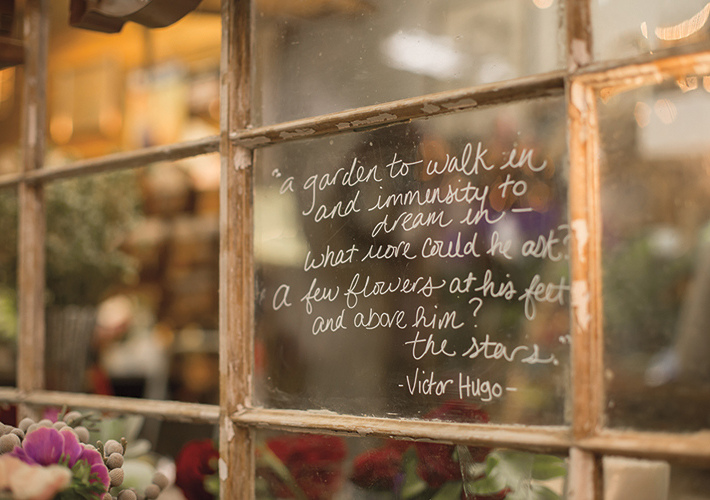 "a garden to walk in
and immensity to
dream in —
what more could he ask?
A few flowers at his feet
and above him?
the stars."
- Victor Hugo -